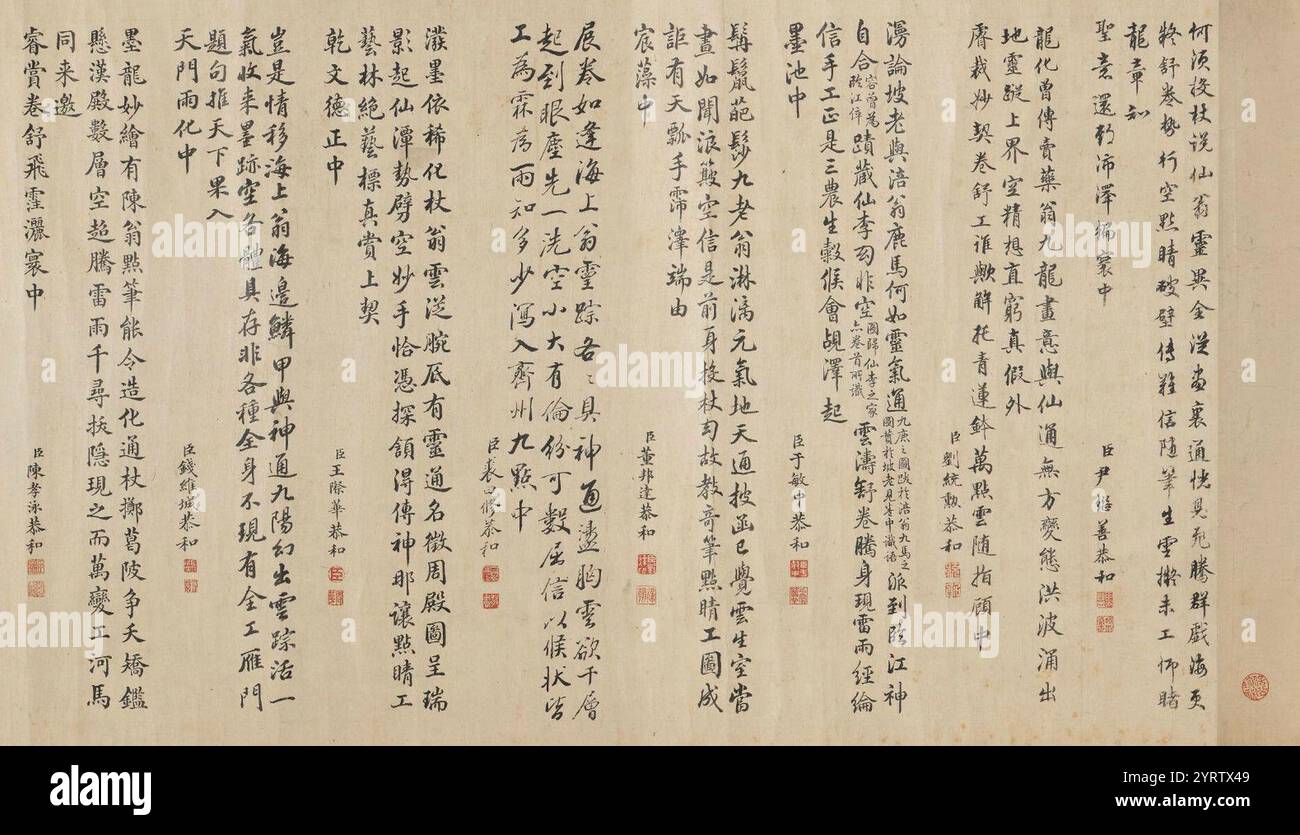 何須投杖說仙翁靈異全從畫裏通恍見飛騰群戲海更
疑舒卷勢行空點睛破壁傳難信隨筆生雲擬未工仰睹
龍章知
聖意還教沛澤徧寰中
臣尹繼善恭和
龍化曾傳賣藥翁九龍畫意與仙通無方變態洪波涌出
地靈蹤上界空精想直窮真假外
睿裁妙契卷舒工誰歟解托青蓮鉢萬點雲隨指顧中
臣劉統勳恭和
漫論坡老與涪翁鹿馬何如靈氣通九鹿之圖跋於涪翁九馬之圖贊於坡老見卷中識語派到臨江神
自合容曾為臨江倅蹟藏仙李匄非空圖歸仙李之家亦卷首所識雲濤舒卷騰身現雷雨經綸
信手工正是三農生穀候會覘澤起
墨池中
臣于敏中恭和
髯鬣葩髿九老翁淋漓元氣地天通披函已覺雲生室當
晝如聞浪簸空信是前身投杖匄故教奇筆點睛工圖成
詎有天瓢手霈澤端由
宸藻中
臣董邦達恭和
展卷如逢海上翁靈踪各各具神通盪胸雲欲千層
起到眼塵先一洗空小大有倫份可數屈信以候狀皆
工為霖為雨知多少瀉入齊州九點中
臣裘曰修恭和
潑墨依稀化杖翁雲從腕底有靈通名徵周殿圖呈瑞
影起仙潭勢劈空妙手恰憑探頷得傳神那讓點睛工
藝林絕藝標真賞上契
乾文德正中
臣王際華恭和
豈是情移海上翁海邊鱗甲與神通九陽幻出雲踪活一
氣收來墨跡空各體具存非各種全身不現有全工雁門
題句推天下果入
天門雨化中
臣錢維城恭和
墨龍妙繪有陳翁點筆能令造化通杖擲葛陂爭夭矯鑑
懸漢殿數層空超騰雷雨千尋抉隱現之而萬變工河馬
同來邀
睿賞卷舒飛霔灑寰中
臣陳孝泳恭和
alamy
Image ID: 2YRTX49
www.alamy.com